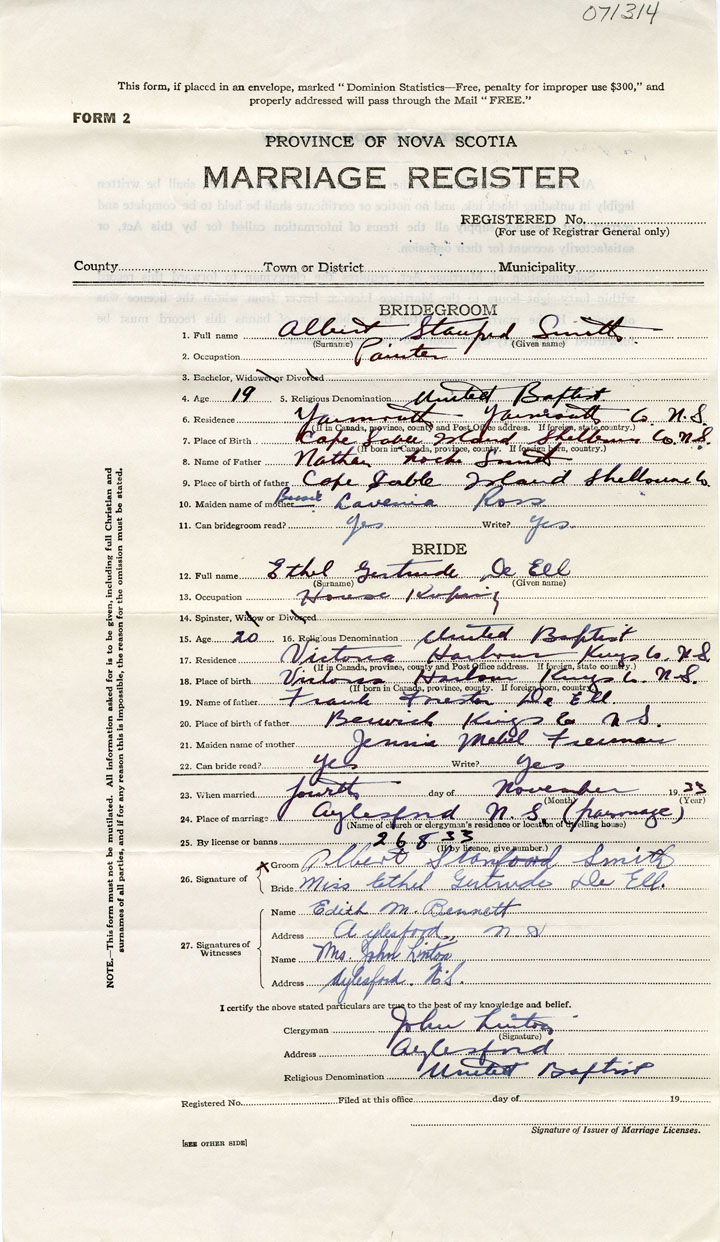 071314
This form, if placed in an envelope, marked "Dominion Statistics—Free, penalty for improper use $300," and
properly addressed will pass through the Mail "FREE."
FORM 2
PROVINCE OF NOVA SCOTIA
MARRIAGE REGISTER
REGISTERED No.
(For use of Registrar General only)
County Town or District Municipality
BRIDEGROOM
1. Full name Albert Stanford Smith
(Surname) (Given name)
2. Occupation Painter
3. Bachelor, Widower or Divorced
4. Age 19 5. Religious Denomination United Baptist
6. Residence Yarmouth - Yarmouth Co. N.S.
(If in Canada, province, county and Post Office address. If foreign, state country.)
7. Place of Birth Cape Sable Island Shelburne Co. N.S.
(If born in Canada, province, county. If foreign born, country.)
8. Name of Father Nathan Locke Smith
9. Place of birth of father Cape Sable Island Shelburne Co.
10. Maiden name of mother Bessie Lavenia Ross
11. Can bridegroom read? Yes Write? Yes
BRIDE
12. Full name Ethel Gertrude De Ell
(Surname) (Given name)
13. Occupation House Keeping
14. Spinster, Widow or Divorced
15. Age 20 16. Religious Denomination United Baptist
17. Residence Victoria Harbour Kings Co. N.S.
(If in Canada, province, county and Post Office address. If foreign, state country.)
18. Place of birth Victoria Harbour Kings Co. N.S.
(If born in Canada, province, county. If foreign born, country)
19. Name of father Frank De Ell
20. Place of birth of father Berwick Kings Co N.S.
21. Maiden name of mother Jennie Mabel Freeman
22. Can bride read? Yes Write? Yes
23. When married fourth day of November 1933
(Month) (Year)
24. Place of marriage Aylesford N.S. (parsonage)
(Name of church or clergyman's residence or location of dwelling house)
25. By license or banns 26833
(If by licence, give number.)
26. Signature of
x Groom Albert Stanford Smith
Bride Miss Ethel Gertrude De Ell.
27. Signatures of Witnesses
Name Edith M. Bennett
Address Aylesford, N S
Name Mrs. John Linton
Address Aylesford. N.S.
I certify the above stated particulars are true to the best of my knowledge and belief.
Clergyman John Linton
(Signature)
Address Aylesford
Religious Denomination United Baptist
Registered No. Filed at this office day of 19
Signature of Issuer of Marriage Licenses.
[SEE OTHER SIDE]
NOTE.—This form must not be mutilated. All information asked for is to be given, including full Christian and
surnames of all parties, and if for any reason this is impossible, the reason for the omission must be stated.